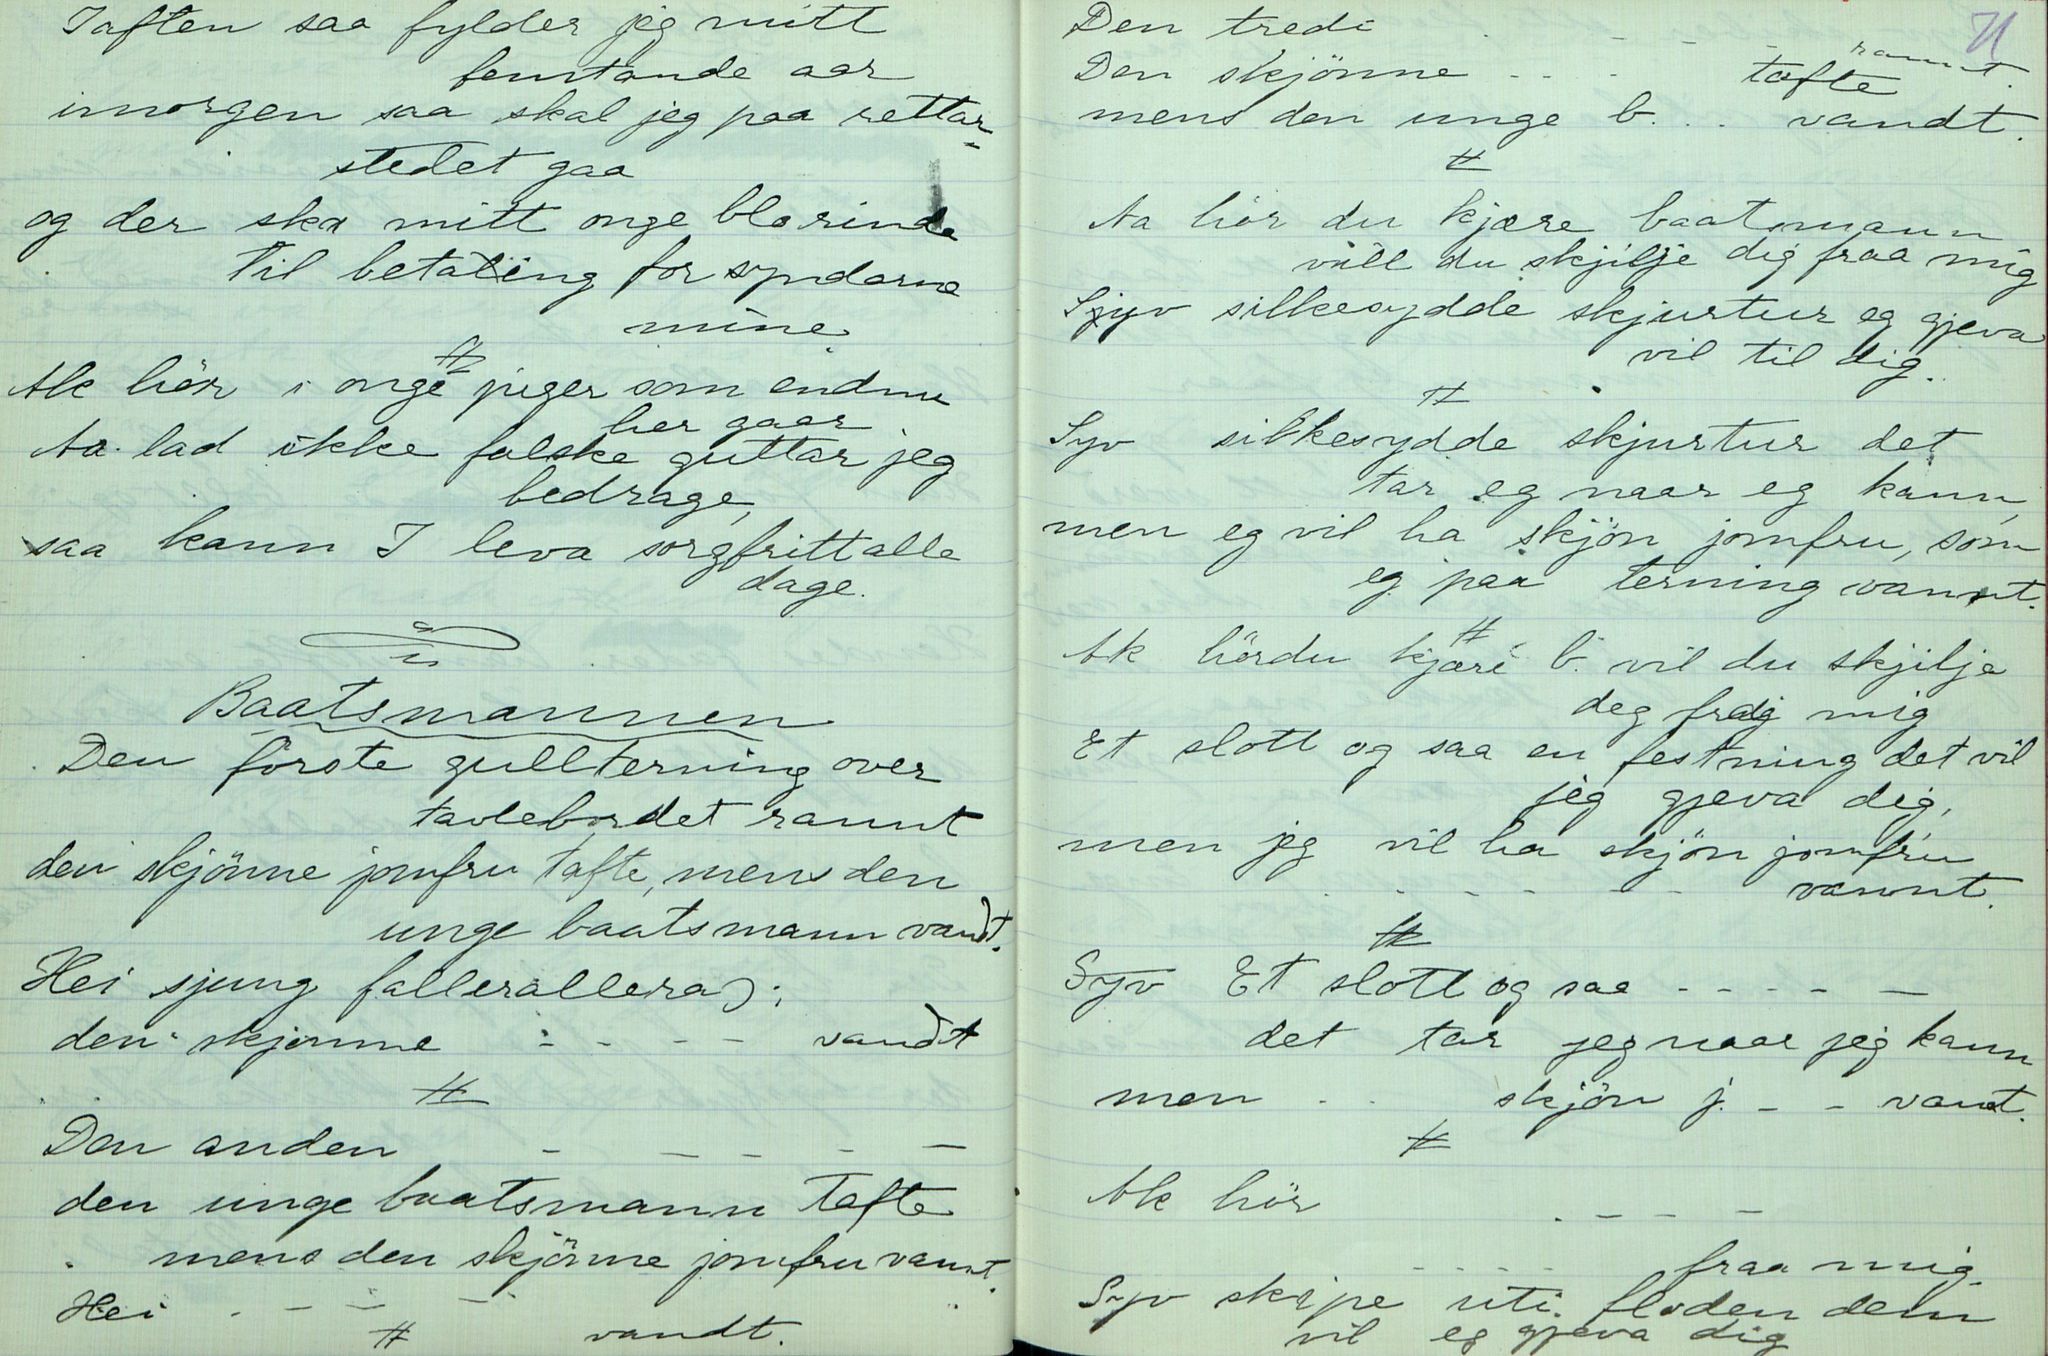 Iaften saa fylder jeg mitt
femtande aar
imorgen saa skal jeg paa rettar-
stedet gaa
og der ska mitt onge blo rinde
til betaling for syndarne
mine.
#
Ak hör i onge piger som endnu
her gaar
Aa lad ikke falske guttar jeg
bedrage,
saa kann I leva sorgfritt alle
dage.
Baatsmannen
Den förste gullterning over
tavlebordet rannt
den skjönne jomfru tafte, mens den
unge baatsmann vandt.
Hei sjung fallerallera :
den skjonne - - - - vandt
#
Den anden - - - - -
den unge baatsmann tafte
mens den skjönne jomfru vannt.
Hei - - - -
# vandt.
71
Den tredi - - - - rannt.
Den skjönne - - - tafte
mens den unge b. . . vandt.
#
Aa hör du kjære baatsmann
vill du skjilje dig fraa mig
Syv silkesydde skjurtur eg gjeva
vil til dig.
#
Syv silkesydde skjurtur det
tar eg naar eg kann,
men eg vil ha skjön jomfru, som
eg paa terning vannt.
#
Ak hördu kjære b. vil du skjilje
deg fraa mig
Et slott og saa en festning det vil
jeg gjeva dig,
men jeg vil ha skjön jomfru
- - - - - - vannt.
#
Syv Et slott og saa - - - - -
det tar jeg naar jeg kann
men - - skjön j. - - vant.
#
Ak hör - - - -
- - - - fraa mig.
Syv skipe uti floden dem
vil eg gjeva dig